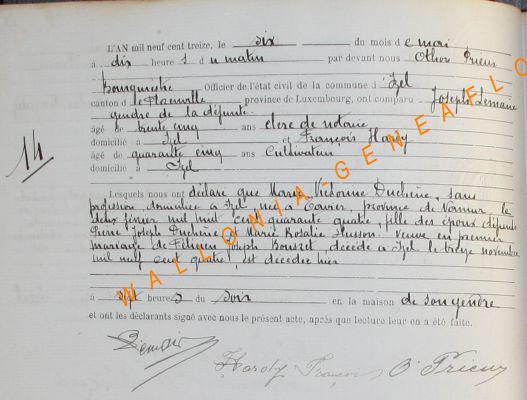 L'AN mil neuf cent treize, le six du mois de mai
à dix heures du matin par devant nous Othon Prieur
Bourgmestre Officier de l'état civil de la commune d'Izel
canton de province de Luxembourg, ont comparu Joseph Lemaire
gendre de la défunte
âgé de trente cinq ans clerc de notaire
domicilié à Izel et François Hardy
âgé de quarante cinq ans Cultivateur
domicilié à Izel
14
Lesquels nous ont déclaré que Marie Victorine Duchêne, sans
profession, domiciliée à Izel, née à province de Namur, le
deux février mil huit cent quarante quatre, fille des époux défunts
Pierre Joseph Duchêne et Marie Rosalie Husson. veuve en premier
mariage de Joseph décédé à Izel le treize novembre
mil neuf cent quatre, est décédée hier
à sept heures du soir en la maison de son gendre
et ont les déclarants signé avec nous le présent acte, après que lecture leur en a été faite.
Lemaire
Hardy François O Prieur
WALLONIA-GENEAFLO